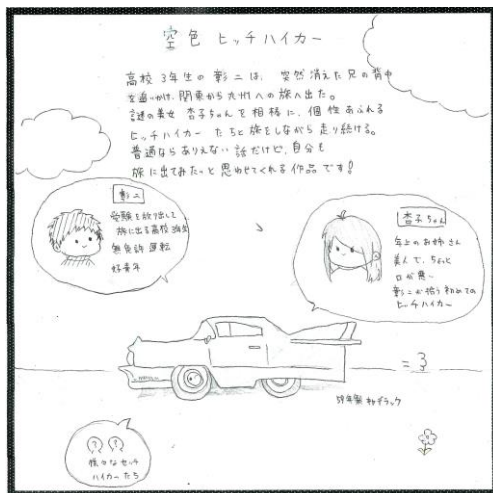 空色 ヒッチハイカー
高校3年生の彰二は、突然消えた兄の背中
を追いかけ、関東から九州への旅へ出た。
謎の美女 杏子ちゃんを相棒に、個性あふれる
ヒッチハイカーたちと旅をしながら走り続ける。
普通ならありえない話だけど、自分も
旅に出てみたいと思わせてくれる作品です!
彰二
受験を放り出して
旅に出る高校3年生
無免許運転
好青年
杏子ちゃん
年上のお姉さん
美人で、ちょっと
口が悪い
彰二が拾う初めての
ヒッチハイカー
59年製 キャデラック
? ?
様々なヒッチ
ハイカーたち